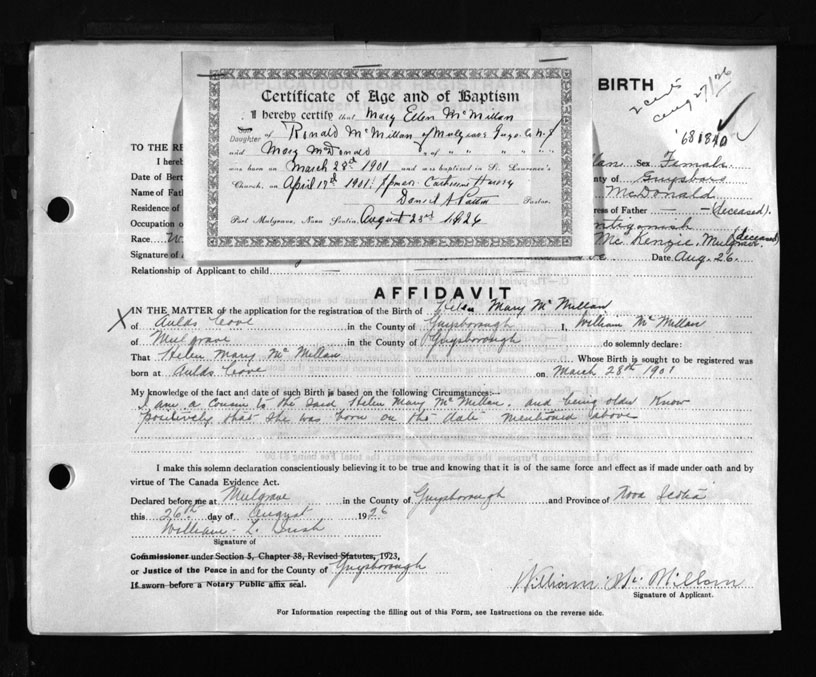 BIRTH
Aug 27/26
681840
Certificate of Age and of Baptism
I hereby certify that Mary Ellen McMillan
Daughter of Ronald McMillan of Mulgrave Guys. Co N.S
and Mary McDonald " of " " " " "
was born on March 28th 1901 and was baptised in St. Lawrence's
Church, on April 17th 1901. Sponsor Catherine
Pastor.
Port Mulgrave, Nova Scotia, August 23rd 1926
TO THE RE
I hereb
lan Sex Female
Date of Bert
nty of Guysboro
Name of Fath
McDonald
Residence of
ress of Father — — (deceased).
Occupation o
Antigonish
Race W
McKenzie, Mulgrave (deceased)
Signature of
Date Aug. 26.
Relationship of Applicant to child
AFFIDAVIT
X IN THE MATTER of the application for the registration of the Birth of Helen Mary McMillan
of Aulds Cove in the County of Guysborough I, William McMillan
of Mulgrave in the County of Guysborough do solemnly declare:
That Helen Mary McMillan Whose Birth is sought to be registered was
born at Aulds Cove on March 28th 1901
My knowledge of the fact and date of such Birth is based on the following Circumstances:—
I am a Cousin to the said Helen Mary McMillan. and being older know
positively that she was born on the date mentioned above
I make this solemn declaration conscientiously believing it to be true and knowing that it is of the same force and effect as if made under oath and by
virtue of The Canada Evidence Act.
Declared before me at Mulgrave in the County of Guysborough and Province of Nova Scotia
this 26th day of August 1926
William L.
Signature of
Commissioner under Section 5, Chapter 38, Revised Statutes, 1923,
or Justice of the Peace in and for the County of Guysborough
If sworn before a Notary Public affix seal.
William McMillan
Signature of Applicant.
For Information respecting the filling out of this Form, see Instructions on the reverse side.